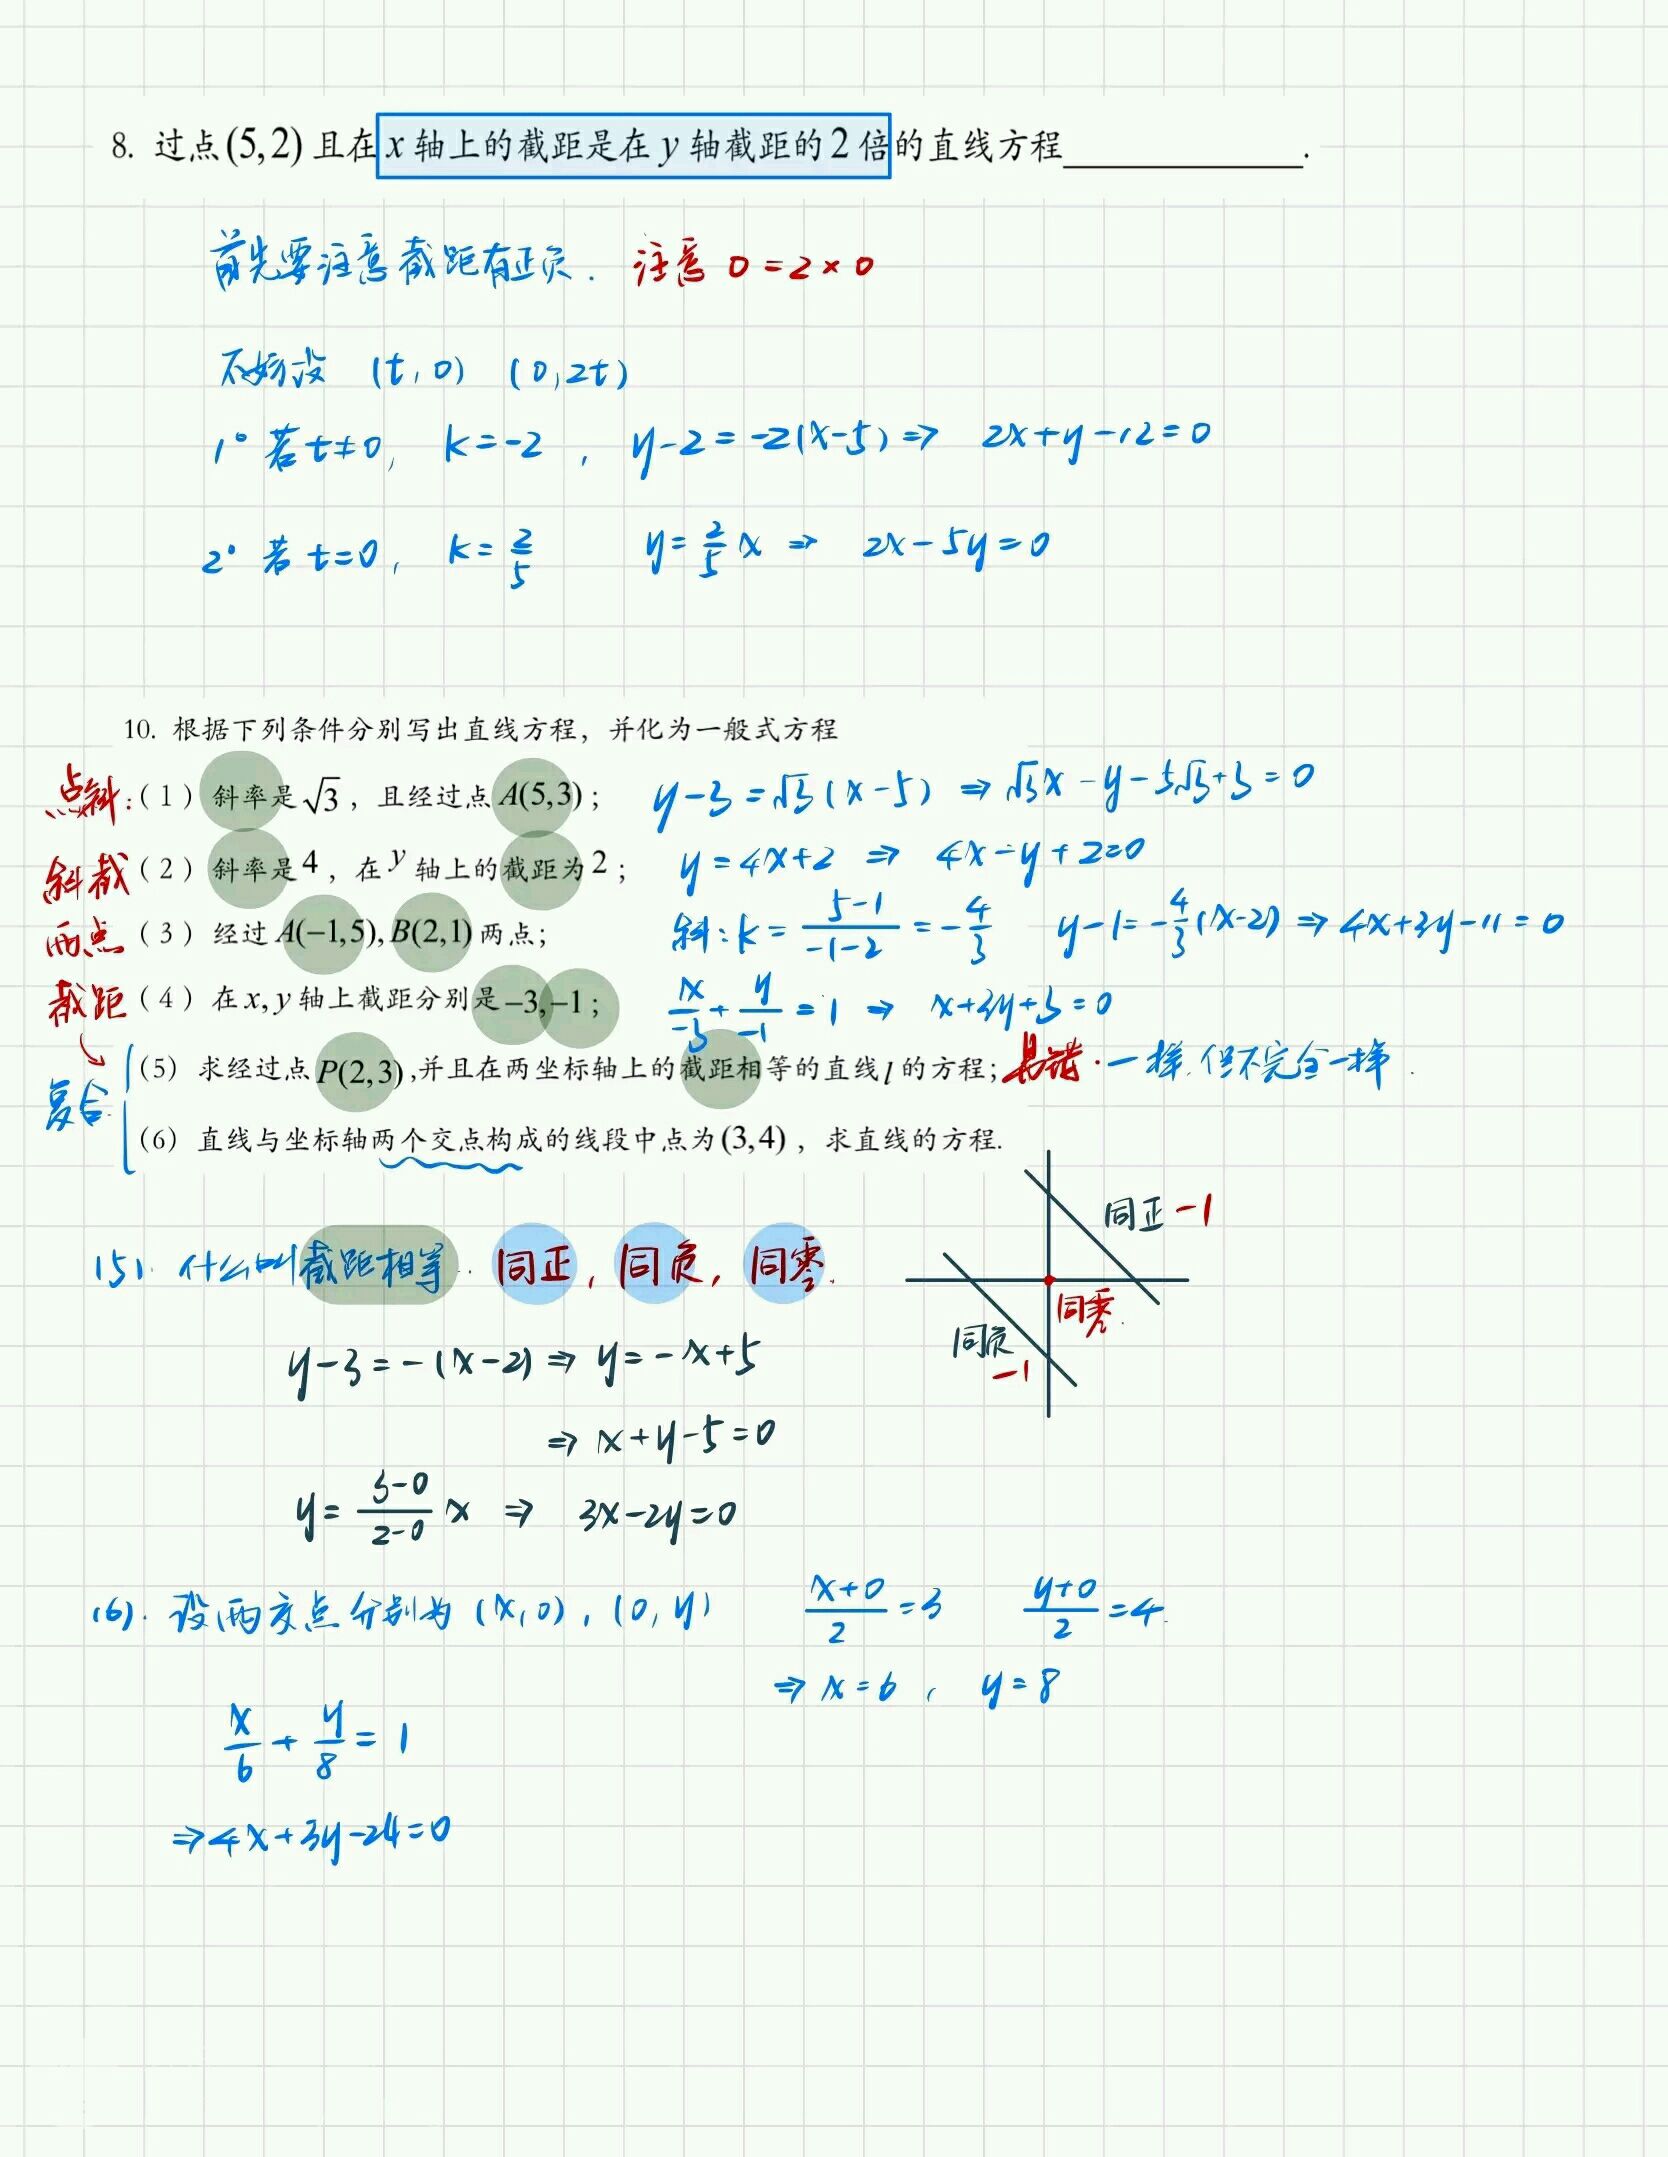 8. 过点(5,2)且在x轴上的截距是在y轴截距的2倍的直线方程____________.
首先要注意截距有正负. 注意 0=2×0
不妨设 (t,0) (0,2t)
1° 若t≠0, k=-2, y-2=-2(x-5)⇒ 2x+y-12=0
2° 若t=0, k=2/5 y=2/5x ⇒ 2x-5y=0
10. 根据下列条件分别写出直线方程，并化为一般式方程
点斜:(1) 斜率是√3，且经过点A(5,3)； y-3=√3(x-5) ⇒√3x-y-5√3+3=0
斜截 (2) 斜率是4，在y轴上的截距为2； y=4x+2 ⇒ 4x-y+2=0
两点 (3) 经过A(-1,5),B(2,1)两点； 斜:k=(5-1)/(-1-2)=-4/3 y-1=-4/3(x-2)⇒4x+3y-11=0
截距 (4) 在x,y轴上截距分别是-3,-1； x/-3+y/-1=1 ⇒ x+3y+3=0
复合 (5) 求经过点P(2,3),并且在两坐标轴上的截距相等的直线l的方程；易错.一样,但不完全一样.
(6) 直线与坐标轴两个交点构成的线段中点为(3,4)，求直线的方程.
同正 -1
(5). 什么叫截距相等. 同正, 同负, 同零.
同零.
同负
-1
y-3=-(x-2)⇒y=-x+5
⇒x+y-5=0
y=(3-0)/(2-0)x ⇒ 3x-2y=0
(6). 设两交点分别为(x,0), (0,y) (x+0)/2=3 (y+0)/2=4.
⇒x=6, y=8
x/6+y/8=1
⇒4x+3y-24=0